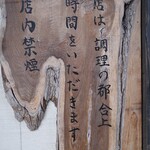 店は、調理の都合上
時間をいただきます
店内禁煙